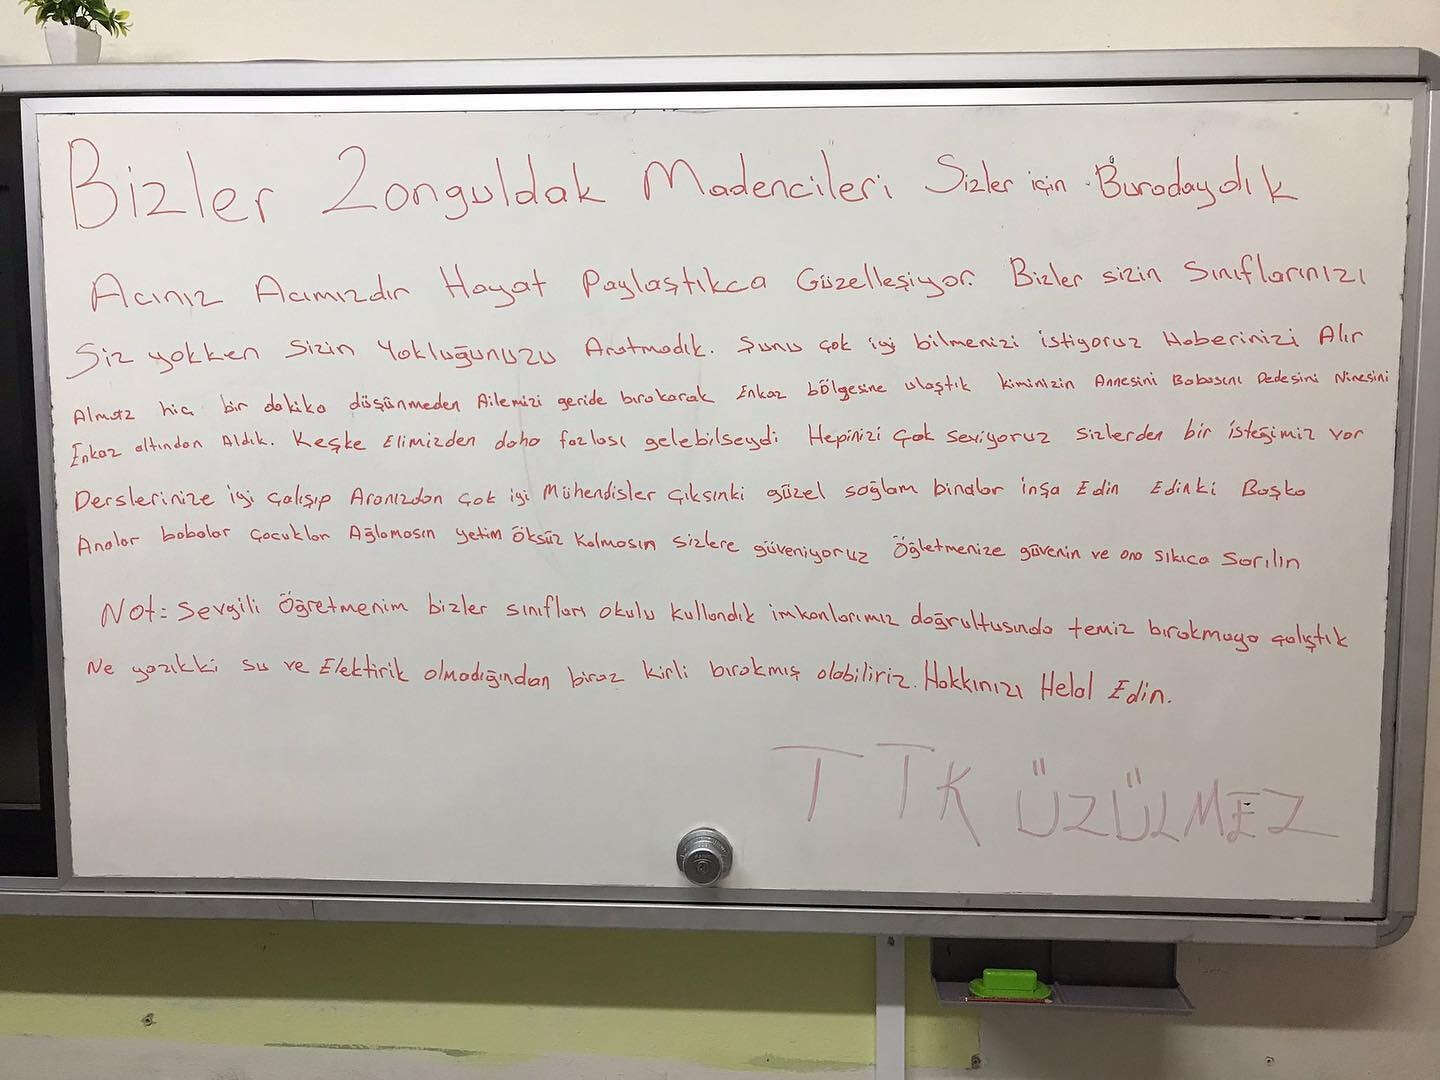 Bizler Zonguldak Madencileri Sizler için Buradaydık
Acınız Acımızdır Hayat Paylaştıkca Güzelleşiyor. Bizler sizin Sınıflarınızı
Siz yokken sizin Yokluğunuzu Aratmadık. Şunu çok iyi bilmenizi istiyoruz Haberinizi Alır
Almaz hiç bir dakika düşünmeden Ailemizi geride bırakarak Enkaz bölgesine ulaştık kiminizin Annesini Babasını Dedesini Ninesini
Enkaz altından Aldık. Keşke Elimizden daha fazlası gelebilseydi Hepinizi Çok seviyoruz sizlerden bir isteğimiz var
Derslerinize iyi çalışıp Aranızdan çok iyi Mühendisler çıksınki güzel sağlam binalar inşa Edin Edinki Başka
Analar babalar çocuklar Ağlamasın yetim öksüz kalmasın sizlere güveniyoruz Öğletmenize güvenin ve ona sıkıca sarılın
Not= Sevgili Öğretmenim bizler sınıfları okulu kullandık imkanlarımız doğrultusında temiz bırakmaya çalıştık
Ne yazıkki su ve Elektirik olmadığından biraz kirli bırakmış olabiliriz. Hakkınızı Helal Edin.
TTK ÜZÜLMEZ